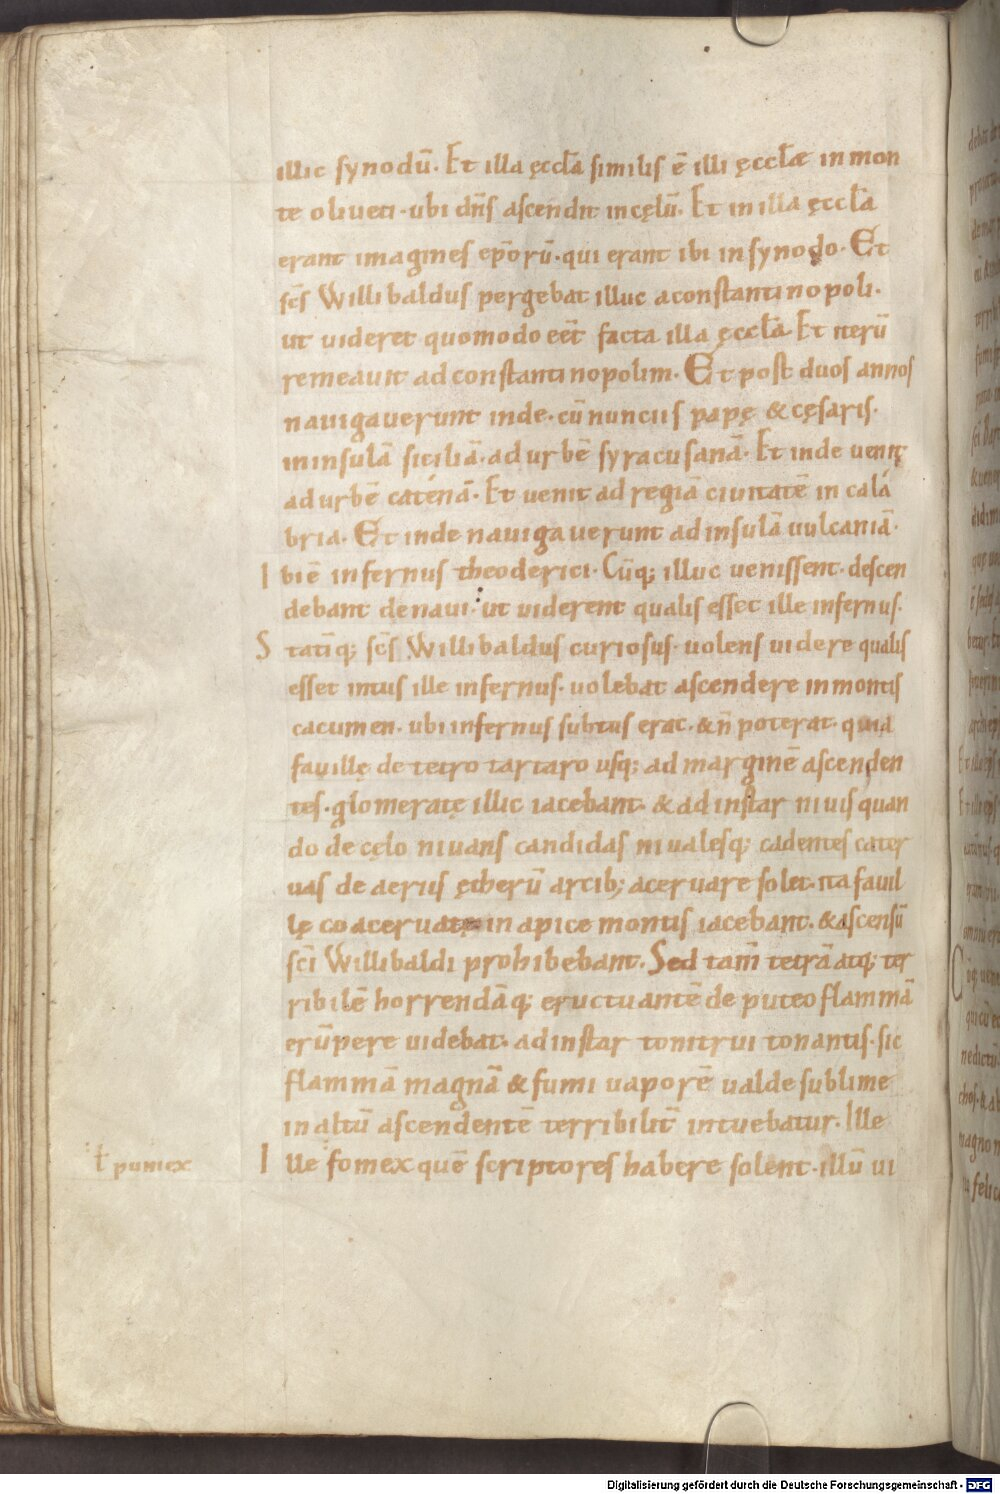 illic synodū. Et illa ęccła similis ē illi ęccłæ in mon
te oliueti. ubi dn̄s ascendit in cęlū. Et in illa ęccła
erant imagines ep̄orū. qui erant ibi in synodo. Et
sc̄s Willibaldus pergebat illuc a constantinopoli.
ut uideret quomodo eēt facta illa ęccła. Et iterū
remeauit ad constantinopolim. Et post duos annos
nauigauerunt inde. cū nunciis papę & cęsaris.
in insulā siciliā. ad urbē syracusanā. Et inde uenit
ad urbē caténā. Et uenit ad regiā ciuitatē in cala
bria. Et inde nauigauerunt ad insulā uulcaniā.
Ibi ē infernus theoderici. Cūq; illuc uenissent. descen
debant de naui. ut uiderent qualis esset ille infernus.
Statīq; sc̄s Willibaldus curiosus. uolens uidere qualis
esset intus ille infernus. uolebat ascendere in montis
cacumen. ubi infernus subtus erat. & n̄ poterat. quia
fauillę de tetro tartaro usq; ad marginē ascenden
tes. glomeratę illic iacebant. & ad instar niuis quan
do de cęlo niuans candidas niualesq; cadentes cater
uas de aeriis ętherū arcib; aceruare solet. ita fauil
lę coaceruatę in apice montis iacebant. & ascensū
sc̄i Willibaldi prohibebant. Sed tam̄ tetrā atq; ter
ribilē horrendāq; eructuantē de puteo flammā
erūpere uidebat. ad instar tonitrui tonantis. sic
flammā magnā & fumi uaporē ualde sublime
in altū ascendentē terribilit̄ intuebatur. Ille
ł pumex
Ille fomex quē scriptores habere solent. illū ui
Digitalisierung gefördert durch die Deutsche Forschungsgemeinschaft - DFG